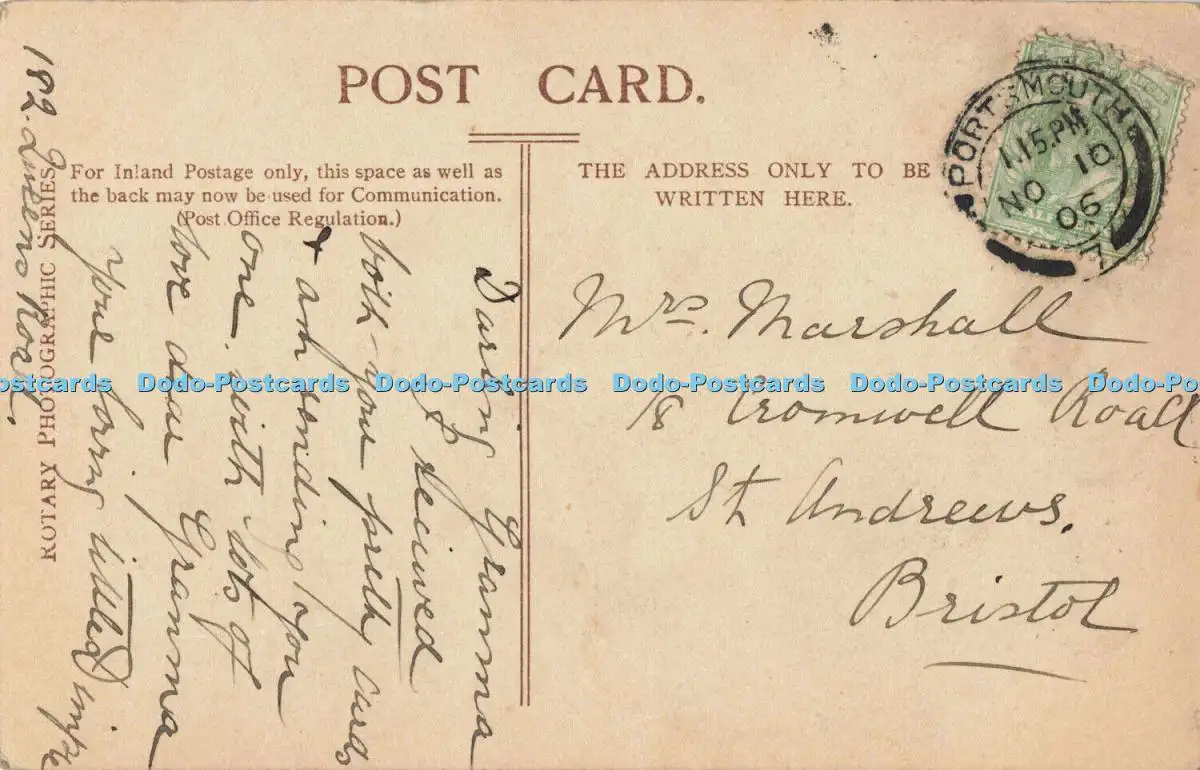 POST CARD.
For Inland Postage only, this space as well as
the back may now be used for Communication.
(Post Office Regulation.)
THE ADDRESS ONLY TO BE
WRITTEN HERE.
PORTSMOUTH
1.15.PM
NO 10
06
7
Mrs. Marshall
18 Cromwell Road
St Andrews.
Bristol
Darling Gramma
I recived
both your pretty cards
& am sending you
one with lots of
love dear Gramma
your loving
182 Queens Road.
ROTARY PHOTOGRAPHIC SERIES
Dodo-Postcards Dodo-Postcards Dodo-Postcards Dodo-Postcards Dodo-Postcards